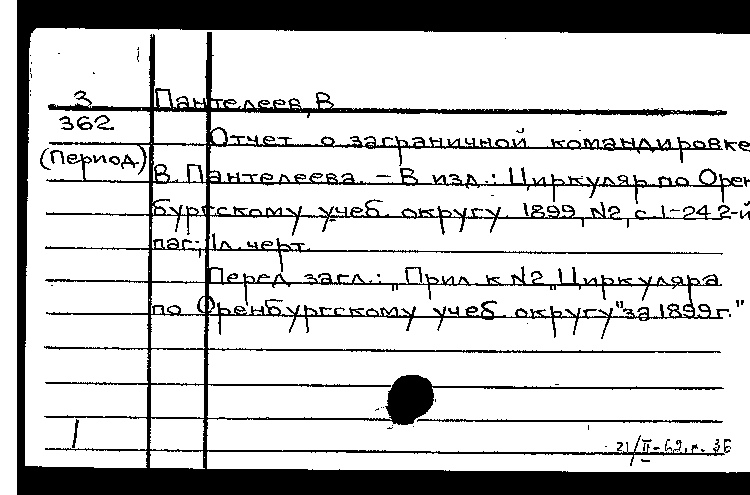 3
362
(Период.)
Пантелеев, В
Отчет о заграничной командировке
В. Пантелеева. – В изд.: Циркуляр по Орен
бургскому учеб. округу. 1899, N2, с. 1-24 2-й
паг; 1л. черт.
Перед загл.: „Прил. к N2 „Циркуляра
по Оренбургскому учеб. округу" за 1899г."
1
21/II-62г. 36